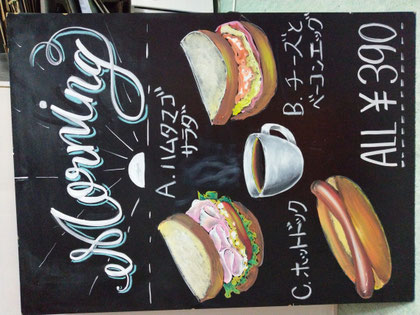 Morning
A. ハムタマゴ
サラダ
B. チーズと
ベーコンエッグ
C. ホットドック
ALL ¥390